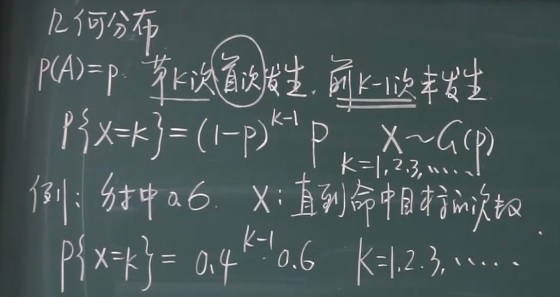 几何分布
P(A)=p. 第K次首次发生, 前K-1次未发生
P{X=K}=(1-p)^{K-1} p X~G(p)
K=1,2,3,......
例: 射中0.6. X: 直到命中目标的次数.
P{X=K}=0.4^{K-1}·0.6 K=1,2,3,......